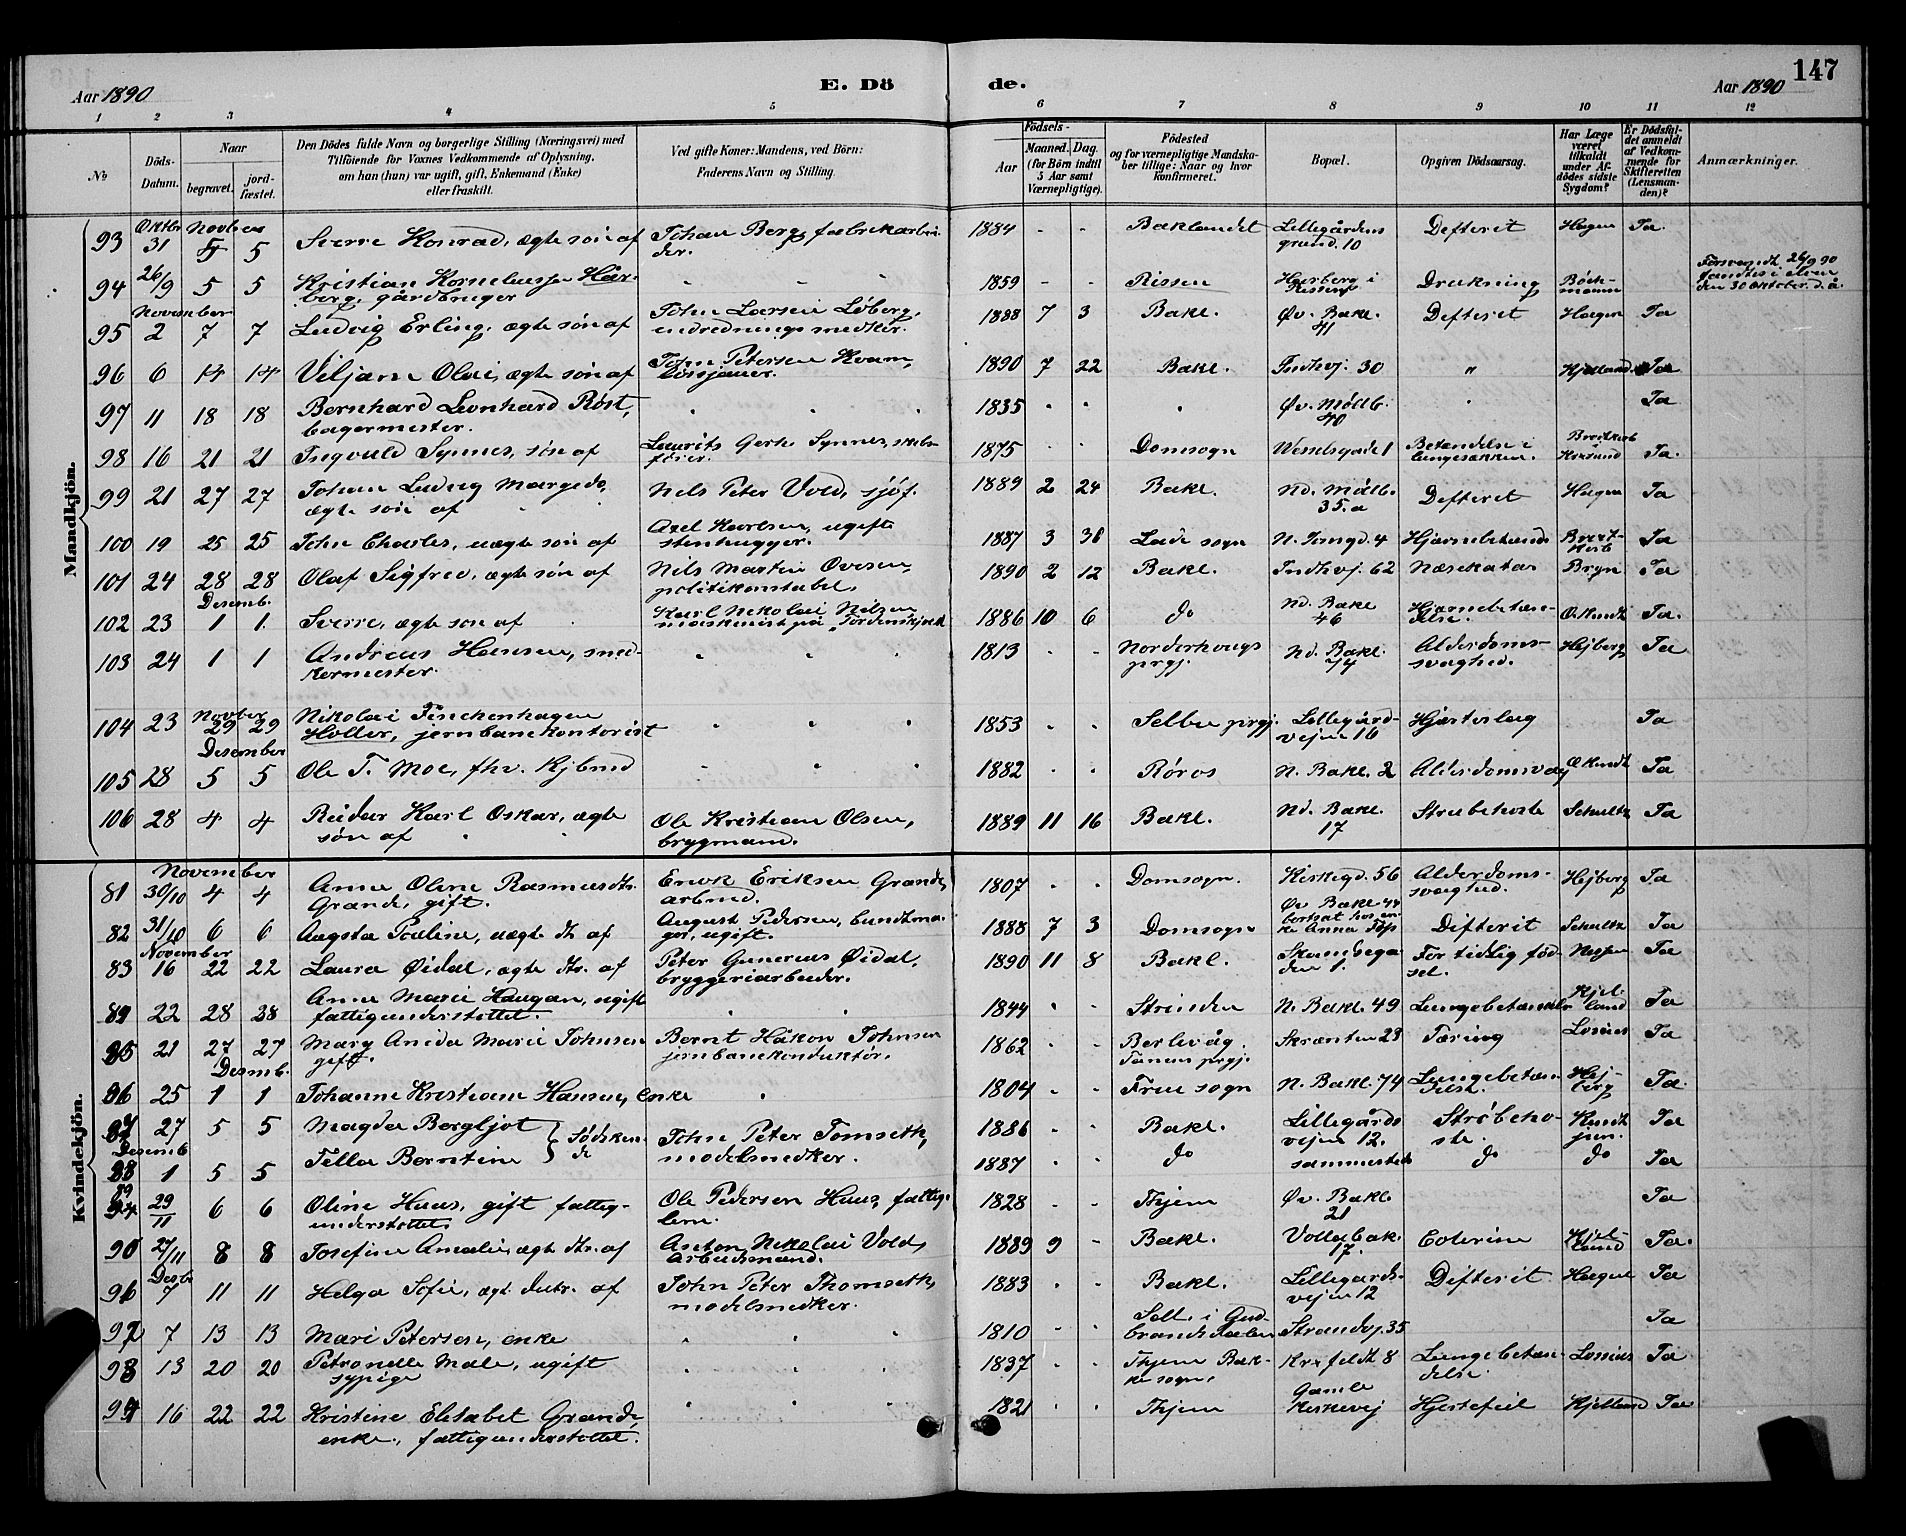 147
Aar 1890 E. Dö de. Aar 1890
1 2 3 4 5 6 7 8 9 10 11 12
No. Döds-Datum. Naar begravet. jordfæstet. Den Dödes fulde Navn og borgerlige Stilling (Næringsvei) med Tilföiende for Voxnes Vedkommende af Oplysning, om han (hun) var ugift, gift, Enkemand (Enke) eller fraskilt. Ved gifte Koner: Mandens, ved Börn: Faderens Navn og Stilling. Födsels- Aar Maaned. Dag. (for Börn indtil 5 Aar samt Værnepligtige). Födested og for værnepligtige Mandskaber tillige: Naar og hvor konfirmeret. Bopæl. Opgiven Dödsaarsag. Har Læge været tilkaldt under Afdödes sidste Sygdom? Er Dödsfaldet anmeldt af Vedkommende for Skifteretten (Lensmanden)? Anmærkninger.
Mandkjön.
Oktbr Novbr
93 31 5 5 Sverre Konrad, ægte søn af Johan Berg, fabrikarbeider. 1884 - - Baklandet Lillegårdens grund. 10 Defterit Hagen Ja.
94 26/9 5 5 Kristian Korneliussen Hårberg, gårdbruger 1859 - - Rissen Harberg i Rissen Drukning Böchmann Forsvandt 26/9 90 fandtes i elven den 30 Oktober d. å.
November
95 2 7 7 Ludvig Erling, ægte søn af John Larsen Løberg, indrednings snedker. 1888 7 3 Bakl. Øv. Bakl. 41 Defterit Hagen Ja
96 6 14 14 Viljam Olai, ægte søn af John Petersen Kvam, 1890 7 22 Bakl. Indhvj. 30 " Kjelland Ja
97 11 18 18 Bernhard Leonhard Røst, bagermester. 1835 Øv. Møllb. 40 " Ja
98 16 21 21 Ingvald Synnes, søn af Laurits Gerh. Synnes, skibsfører. 1875 Domsogn Wesselsgade 1 Betændelse i lungesækken. Ja.
99 21 27 27 Johan Ludvig ægte søn af Nils Peter Vold, sjöf. 1889 2 24 Bakl. Nd. Møllb. 35.a Defterit Hagen Ja
100 19 25 25 John Charles, uægte søn af Axel Karlsen, ugift stenhugger. 1887 3 Lade sogn 4 Hjærnebetænd. Ja
101 24 28 28 Olaf Sigfred, ægte søn af Nils Martin Ovesen, politikonstabel. 1890 2 12 Bakl. Indhvj. 62 Næsekatar Bryn Ja
Desemb.
102 23 1 1 Sverre, ægte søn af Karl Nikolai Nilsen maskinist på "Tordenskjold" 1886 10 6 do Nd. Bakl 46 Hjærnebetændelse. Ja.
103 24 1 1 Andreas Hansen, snedkermester. 1813 - - Norderhougs prgj. Nd. Bakl. 74 Alderdomssvaghed. Hejberg Ja
Novber
104 23 29 29 Nikolai Finchenhagen Holler, jernbanekontorist 1853 Selbu prgj. Lillegårdvejen 16 Hjærteslag Ja
Desember
105 28 5 5 Ole T. Moe, fhv. Kjbmd 1882 Røros N. Bakl. 2 Alderdomsvag Ja
106 28 4 4 Reidar Karl Oskar, ægte søn af Ole Kristian Olsen, brygmand. 1889 11 16 Bakl. Nd. Bakl. 17 Strubehoste Schultz Ja
Kvindekjön.
November
81 30/10 4 4 Anna Oline Rasmusdtr. Grande, gift. Enok Eriksen Grande, arbmd. 1807 Domsogn. Kirkegd. 56 Alderdomssvaghed. Hejberg Ja
82 31/10 6 6 Augsta Pauline, uægte dtr af August Pedersen, bundtmager, ugift. 1888 7 3 Domsogn Øv Bakl 44 bortsat hos enke Anna Difterit Schultz Ja
November
83 16 22 22 Laura Øidal, ægte dtr. af Peter Gunerius Øidal, bryggeriarbeider. 1890 11 8 Bakl. 1. For tidlig fødsel. Ja
84 22 28 28 Anne Marie Haugan, ugift fattigunderstöttet. 1844 Strinden N. Bakl. 49 Lungebetændelse Kjelland Ja
85 21 27 27 Mary Anida Marie Johnsen gift. Bernt Håkon Johnsen jernbanekonduktör. 1862 Berlevåg. Tanens prgj. Skrænten 23 Tæring Lossius Ja
Desemb.
86 25 1 1 Johanne Kristiane Hansen, enke 1804 Frue sogn N. Bakl. 74 Lungebetændelse. Hejberg Ja.
87 27 5 5 Magda Bergljot } Sødskende John Peter Tomseth, modelsnedker. 1886 Bakl. Lillegårdsvejen 12. Strøbehoste. Ja
Desemb
88 1 5 5 Tella Berntine 1887 do sammesteds do do Ja
89 29/11 6 6 Oline Huus, gift fattigunderstöttet. Ole Pedersen Huus, fattiglem. 1828 Thjem Øv. Bakl. 21 Ja
90 27/11 8 8 Josefine Amalie, ægte dtr. af Anton Nikolai Vold, Arbeidsmand. 1889 9 - Bakl. Vollabak. 17. Colerine Kjelland Ja.
Desbr
91 7 11 11 Helga Sofie, ægt. datr. af John Peter Thomseth, modelsnedker. 1883 Bakl. Lillegårdsvejen 12 Difterit Hagen Ja
92 7 13 13 Mari Petersen, enke 1810 Sell i Gudbrandsdalen Strandvj. 35 Ja
93 13 20 20 Petronelle Male, ugift sypige 1837 Thjem Bakkesogn. 8 Lungebetændelse. Lossius Ja
94 16 22 22 Kristine Elisabet Grande, enke, fattigunderstöttet. 1821 Thjem Gamle Kirkevej Hjertefeil Kjelland Ja